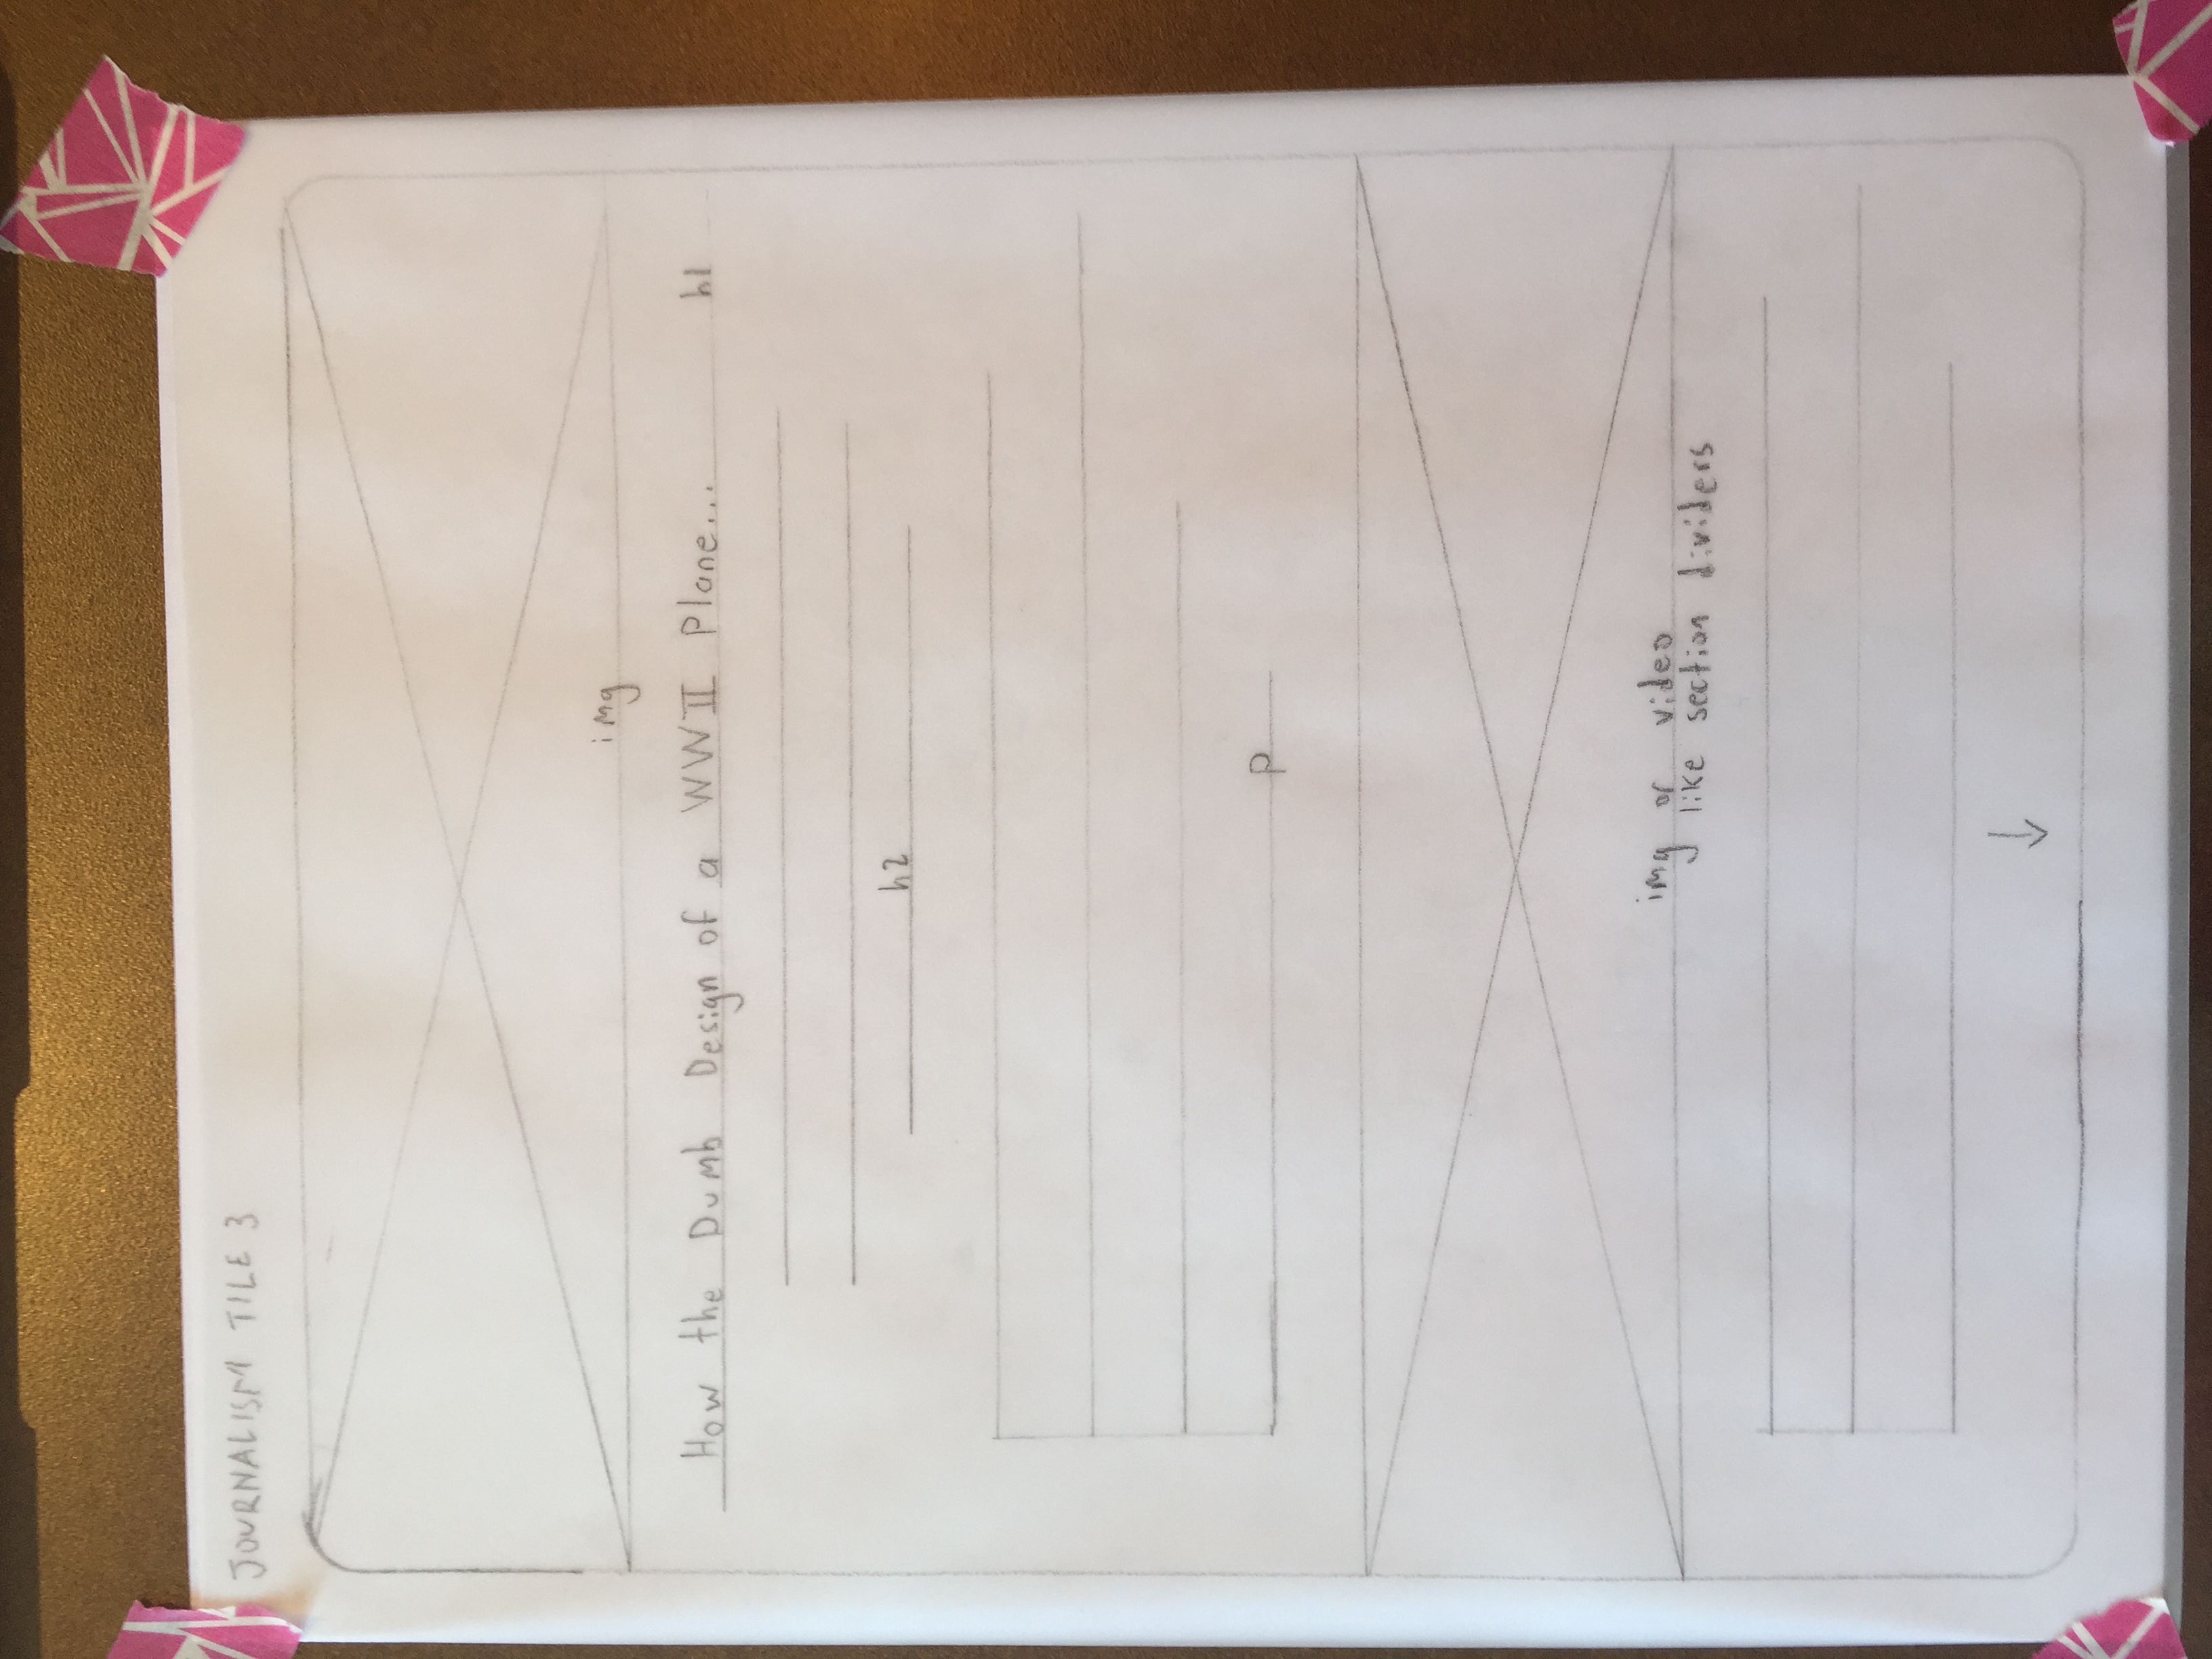 JOURNALISM TILE 3
img
How the Dumb Design of a WWII Plane... h1
h2
p
img or video
like section dividers